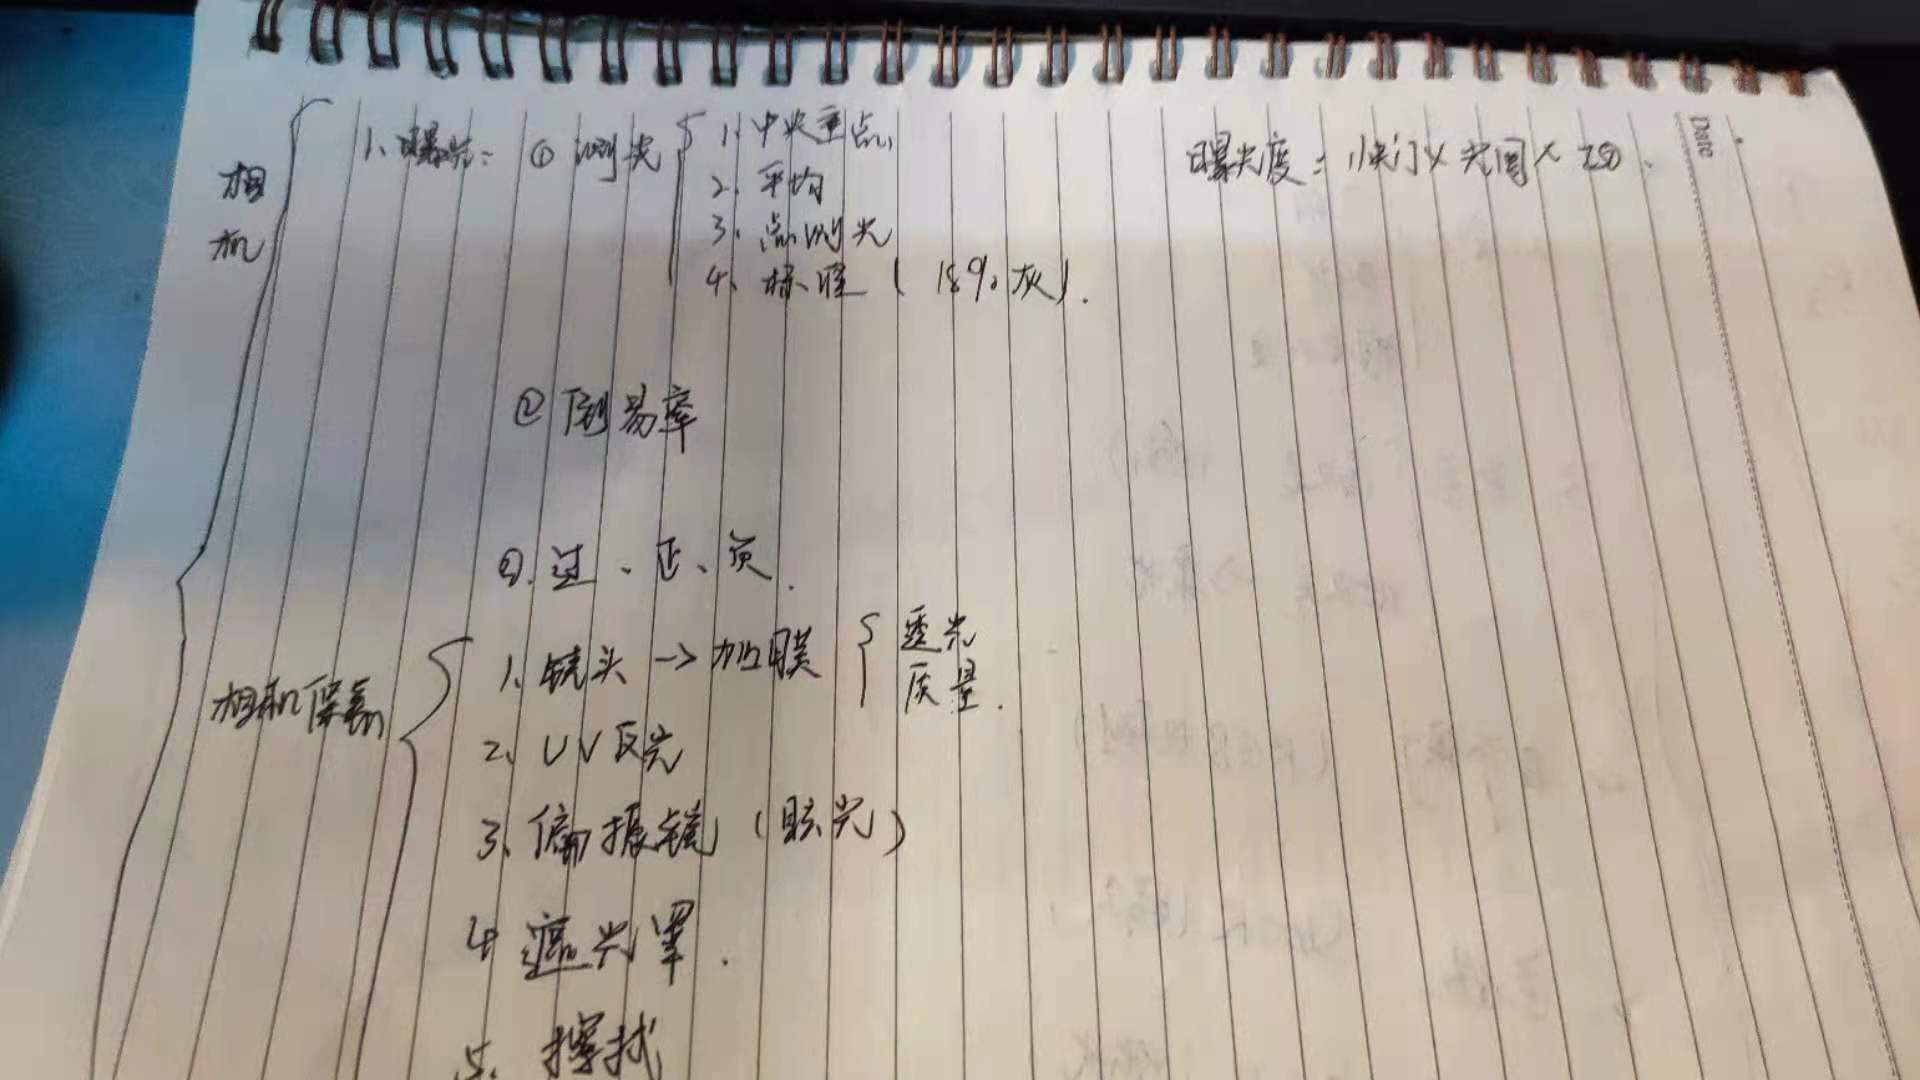 相机
1、曝光: ① 测光
1、中央重点,
2、平均
3、点测光
4、标准 ( 18% 灰 ).
曝光度: 快门 × 光圈 × ISO.
② 倒易率
③. 过、正、负.
相机保养
1、镜头 → 加膜
透光
质量.
2、UV 反光
3、偏振镜 (眩光)
4 遮光罩.
5、擦拭
Date